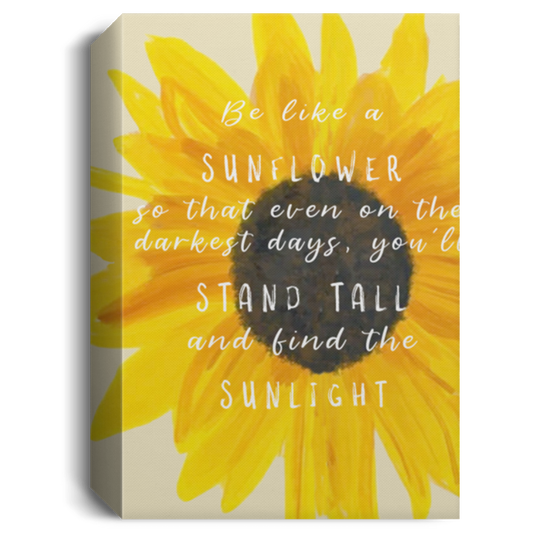 Be like a
SUNFLOWER
so that even on the
darkest days, you'll
STAND TALL
and find the
SUNLIGHT